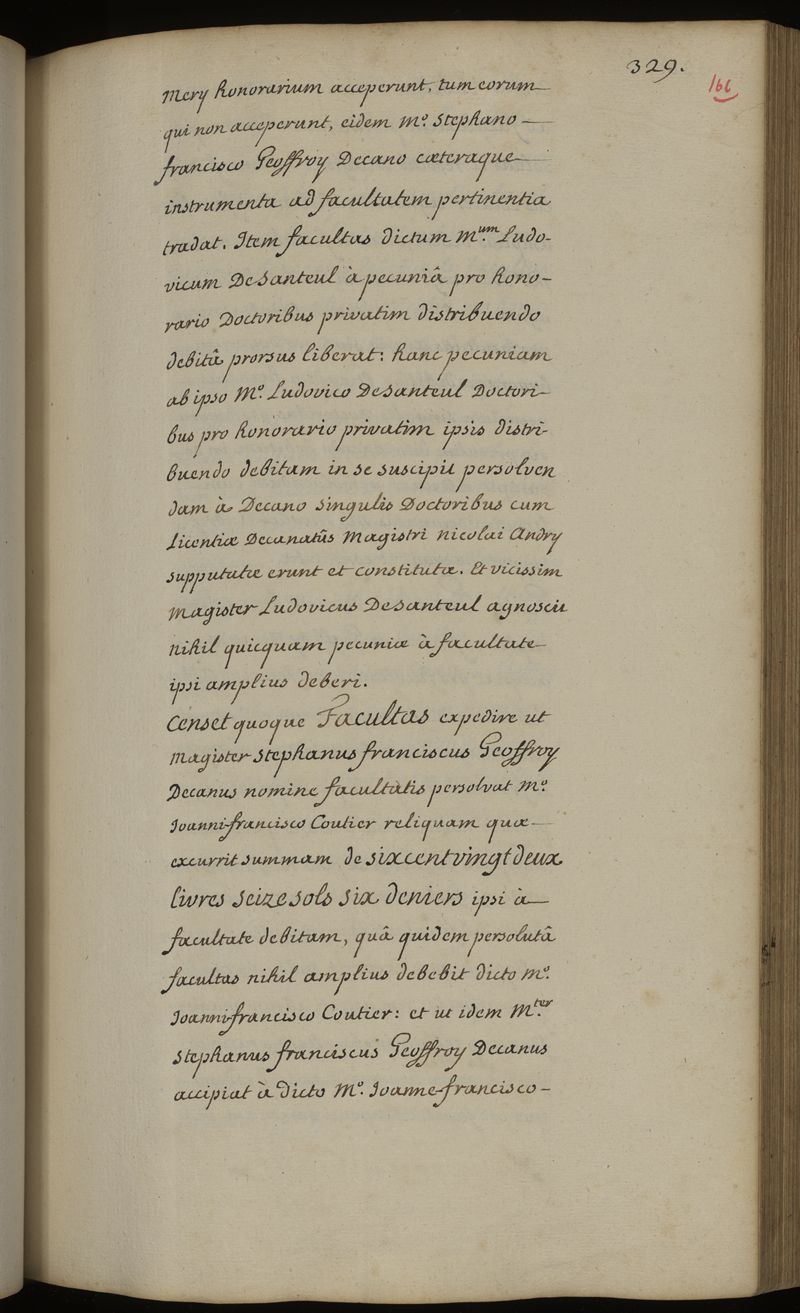 329.
166
mery honorarium acceperunt, tum eorum
qui non acceperunt, eidem M.o Stephano
francisco Geoffroy Decano cæteraque
instrumenta ad facultatem pertinentia
tradat. Item facultas dictum M.um Ludo-
vicum De Santeul à pecuniâ pro hono-
rario Doctoribus privatim distribuendo
debitâ prorsus liberat: hanc pecuniam
ab ipso M.o Ludovico De Santeul Doctori-
bus pro honorario privatim ipsis distri-
buendo debitam in se suscipit persolven
dam à Decano singulis Doctoribus cum
Licentiæ Decanatûs Magistri nicolai Andry
supputatæ erunt et constitutæ. Et vicissim
magister Ludovicus De Santeul agnoscit
nihil quicquam pecuniæ à facultate
ipsi amplius deberi.
Censet quoque Facultas expedire ut
magister Stephanus franciscus Geoffroy
Decanus nomine facultatis persolvat M.o
Joanni-francisco Coutier reliquam quæ
excurrit summam de six cent vingt deux
livres seize sols six deniers ipsi à
facultate debitam, quâ quidem persolutâ
facultas nihil amplius debebit dicto M.o
Joanni-francisco Coutier: et ut idem M.ter
Stephanus franciscus Geoffroy Decanus
accipiat à dicto M.o Joanne-francisco -